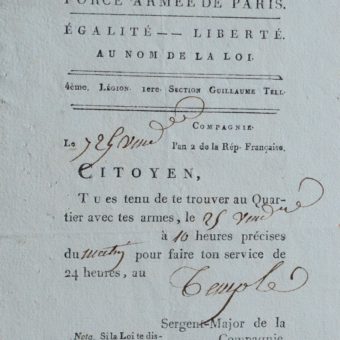 FORCE ARMÉE DE PARIS.
ÉGALITÉ — LIBERTÉ.
AU NOM DE LA LOI.
4ème. Légion. 1ere. Section Guillaume Tell.
Compagnie.
Le 25 l'an 2 de la Rép. Française.
CITOYEN,
Tu es tenu de te trouver au Quar-
tier avec tes armes, le 25
à 10 heures précises
du matin pour faire ton service de
24 heures, au Temple
Sergent-Major de la
Nota. Si la Loi te dis- Compagnie.